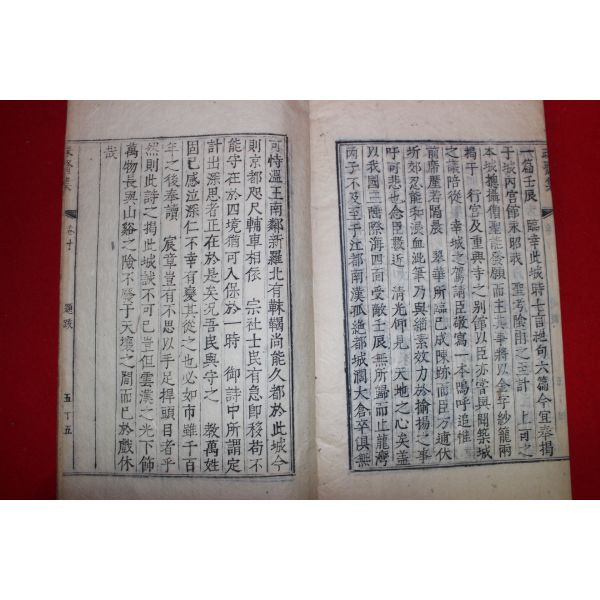 一篇壬辰 臨幸此城時上言絕句六篇今宜奉揭
于城內官館永照我 聖考陰雨之至計 上可之
本城摠攝僧聖能發願而主其事將以金字紗籠兩
揭于 行宮及重興寺之別館以臣亦嘗與聞築城
之議陪從 幸城之駕請臣敬寫一本嗚呼追惟
前席塵若隔晨 翠華所臨已成陳跡而臣方遁伏
郊忍能和淚血泚筆乃與緇素效力於揄揚之事
呼可悲也念臣近 清光仰見 天地之心矣蓋
以我國三陲際海四面受敵壬辰無所歸而止龍灣
丙子不及至乎江都南漢孤絕都城濶大倉卒俱無
可恃溫王南鄰新羅北有靺鞨尚能久都於此城今
則京都咫尺輔車相依 宗社士民有急即移苟不
能守在於四境猶可入保於一時 御詩中所謂定
計出深思者正在於是矣況吾民與守之 教萬姓
固已感泣深仁不幸有變其從之也必如市雖千百
年之後奉讀 宸章豈有不思以手足捍頭目者乎
然則此詩之揭此城誠不可已豈但雲漢之光下飾
萬物長與山谿之險不騫于天壤之間而已於戲休
哉
卷十 題跋 五十五